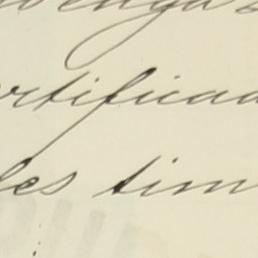 rtificad
les tim